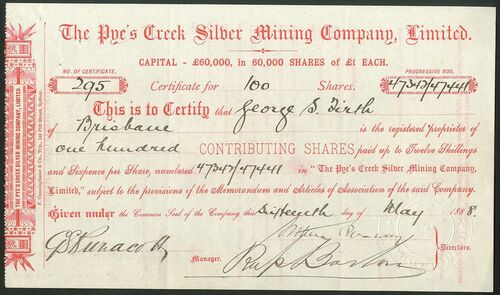 The Pye's Creek Silver Mining Company, Limited.
CAPITAL - £60,000, in 60,000 SHARES of £1 EACH.
NO. OF CERTIFICATE. PROGRESSIVE NOS.
295 Certificate for 100 Shares. 47342/47441
This is to Certify that George S. Firth
of Brisbane is the registered proprietor of
one hundred CONTRIBUTING SHARES paid up to Twelve Shillings
and Sixpence per Share, numbered 47342/47441 in "The Pye's Creek Silver Mining Company,
Limited," subject to the provisions of the Memorandum and Articles of Association of the said Company.
Given under the Common Seal of the Company this Sixteenth day of May 1888.
Directors.
Manager.
THE PYE'S CREEK SILVER MINING COMPANY, LIMITED.